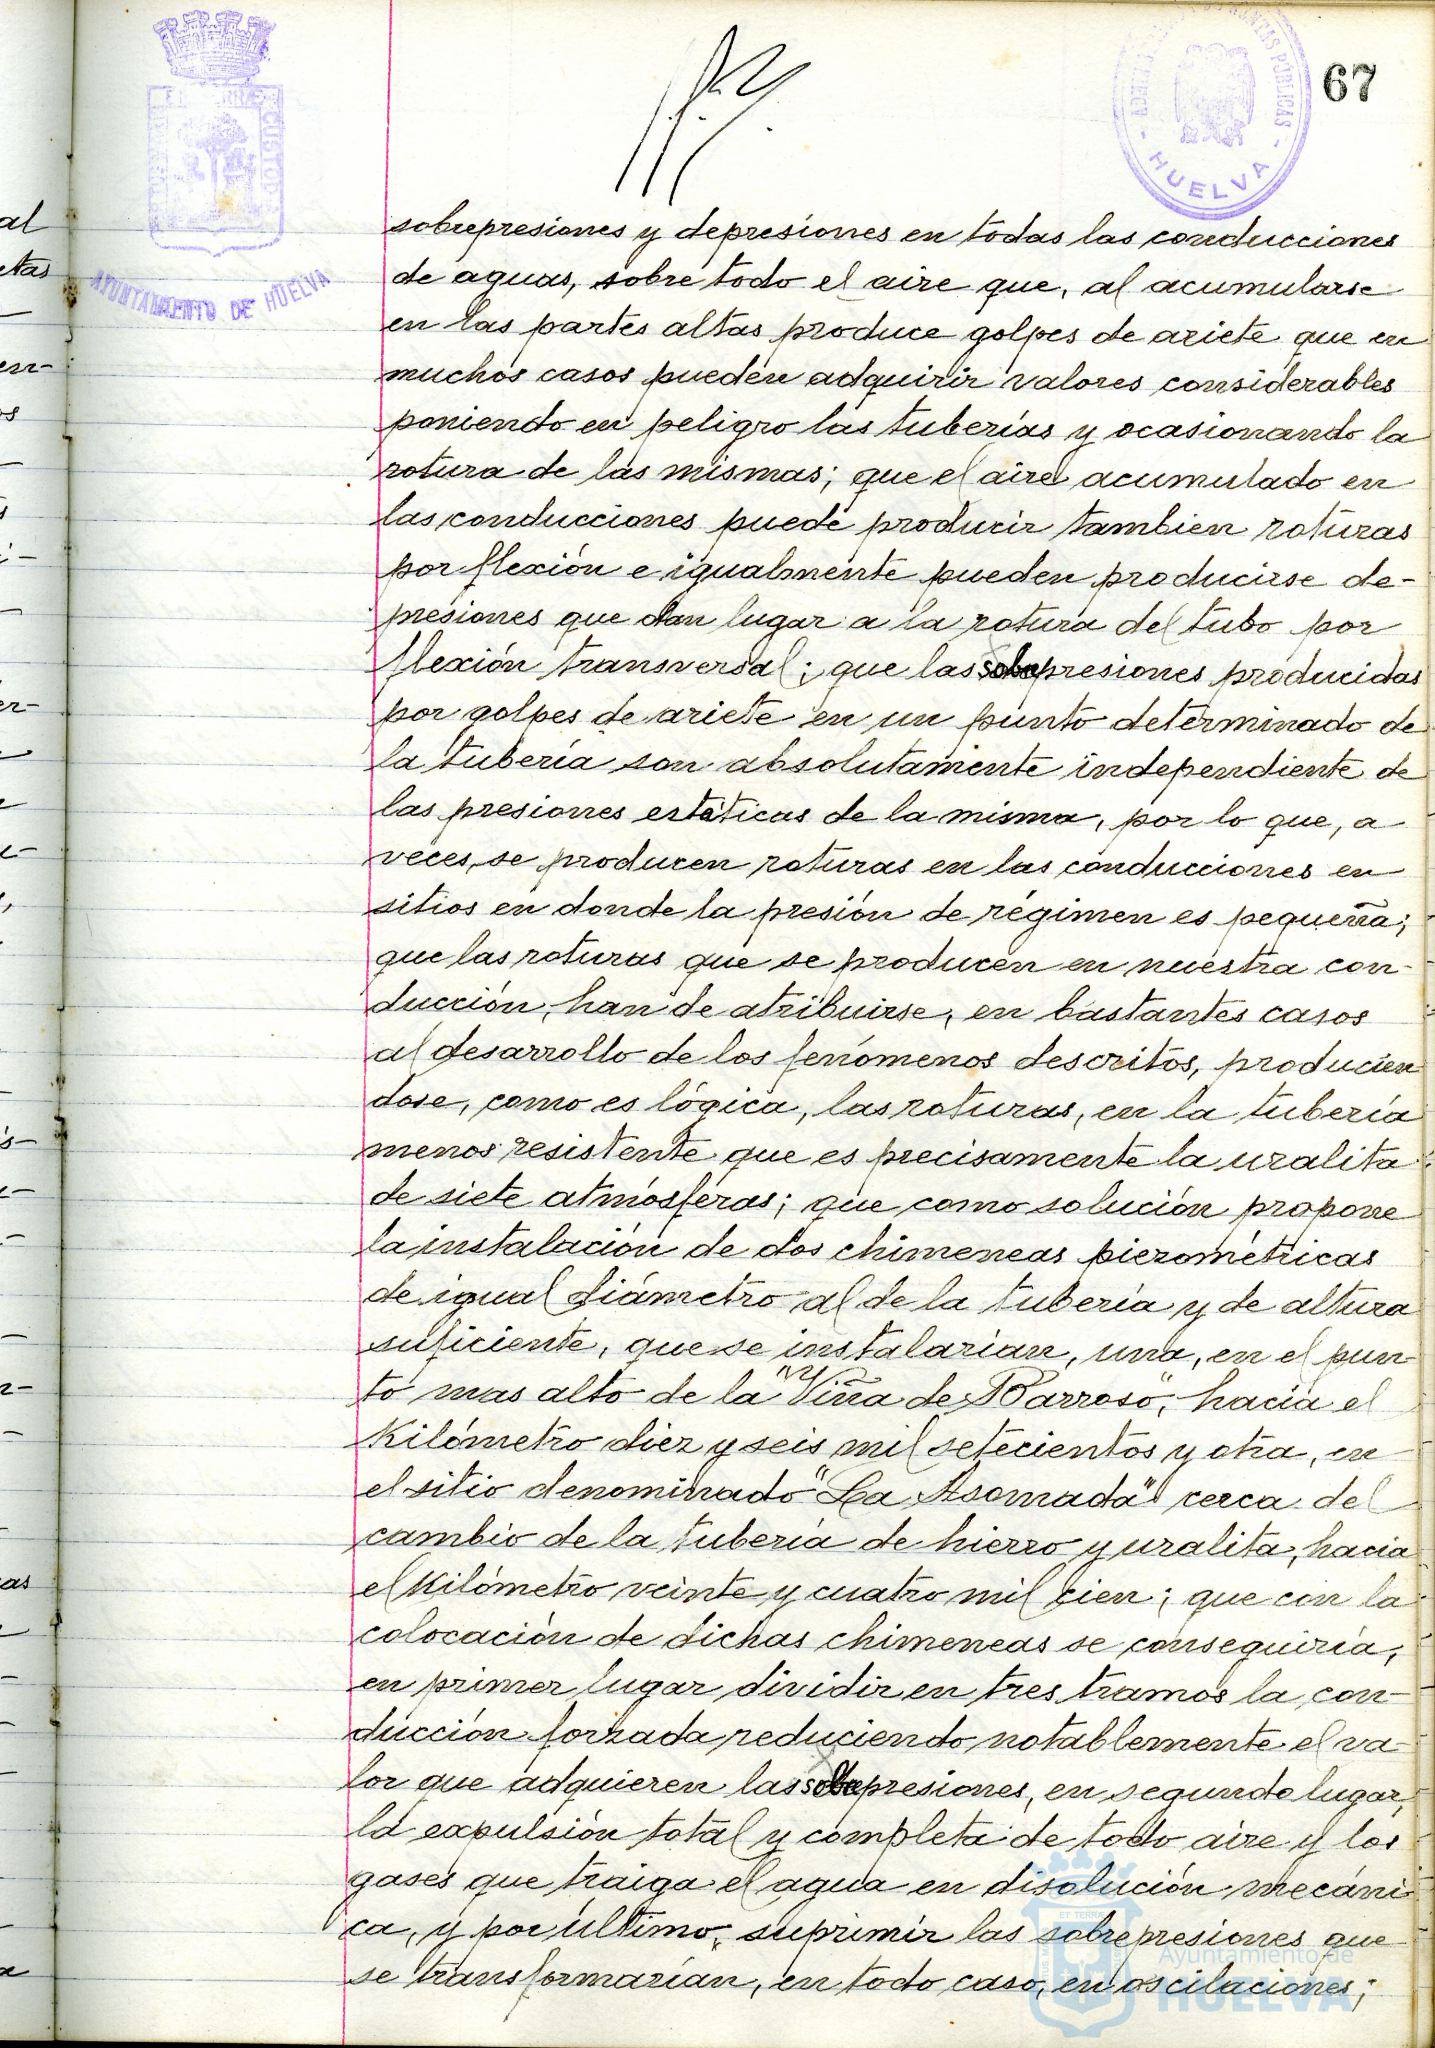 67
AYUNTAMIENTO DE HUELVA
HUELVA
sobrepresiones y depresiones en todas las conducciones
de aguas, sobre todo el aire que, al acumularse
en las partes altas produce golpes de ariete que en
muchos casos pueden adquirir valores considerables
poniendo en peligro las tuberías y ocasionando la
rotura de las mismas; que el aire acumulado en
las conducciones puede producir tambien roturas
por flexión e igualmente pueden producirse de-
presiones que dan lugar a la rotura del tubo por
flexión transversal; que las sobrepresiones producidas
por golpes de ariete en un punto determinado de
la tubería son absolutamente independiente de
las presiones estáticas de la misma, por lo que, a
veces, se producen roturas en las conducciones en
sitios en donde la presión de régimen es pequeña;
que las roturas que se producen en nuestra con-
ducción, han de atribuirse, en bastantes casos
al desarrollo de los fenómenos descritos, producien
dose, como es lógica, las roturas, en la tubería
menos resistente que es precisamente la uralita
de siete atmósferas; que como solución propone
la instalación de dos chimeneas piezométricas
de igual diámetro al de la tubería y de altura
suficiente, que se instalarian, una, en el pun-
to mas alto de la "Viña de Barroso", hacia el
Kilómetro diez y seis mil setecientos y otra, en
el sitio denominado "La Asomada" cerca del
cambio de la tubería de hierro y uralita, hacia
el Kilómetro veinte y cuatro mil cien; que con la
colocación de dichas chimeneas se conseguiría,
en primer lugar dividir en tres tramos la con-
ducción forzada reduciendo notablemente el va-
lor que adquieren las sobrepresiones, en segundo lugar,
la expulsión total y completa de todo aire y los
gases que traiga el agua en disolución mecáni
ca, y por último, suprimir las sobrepresiones que
se transformarían, en todo caso, en oscilaciones;
Ayuntamiento de
HUELVA